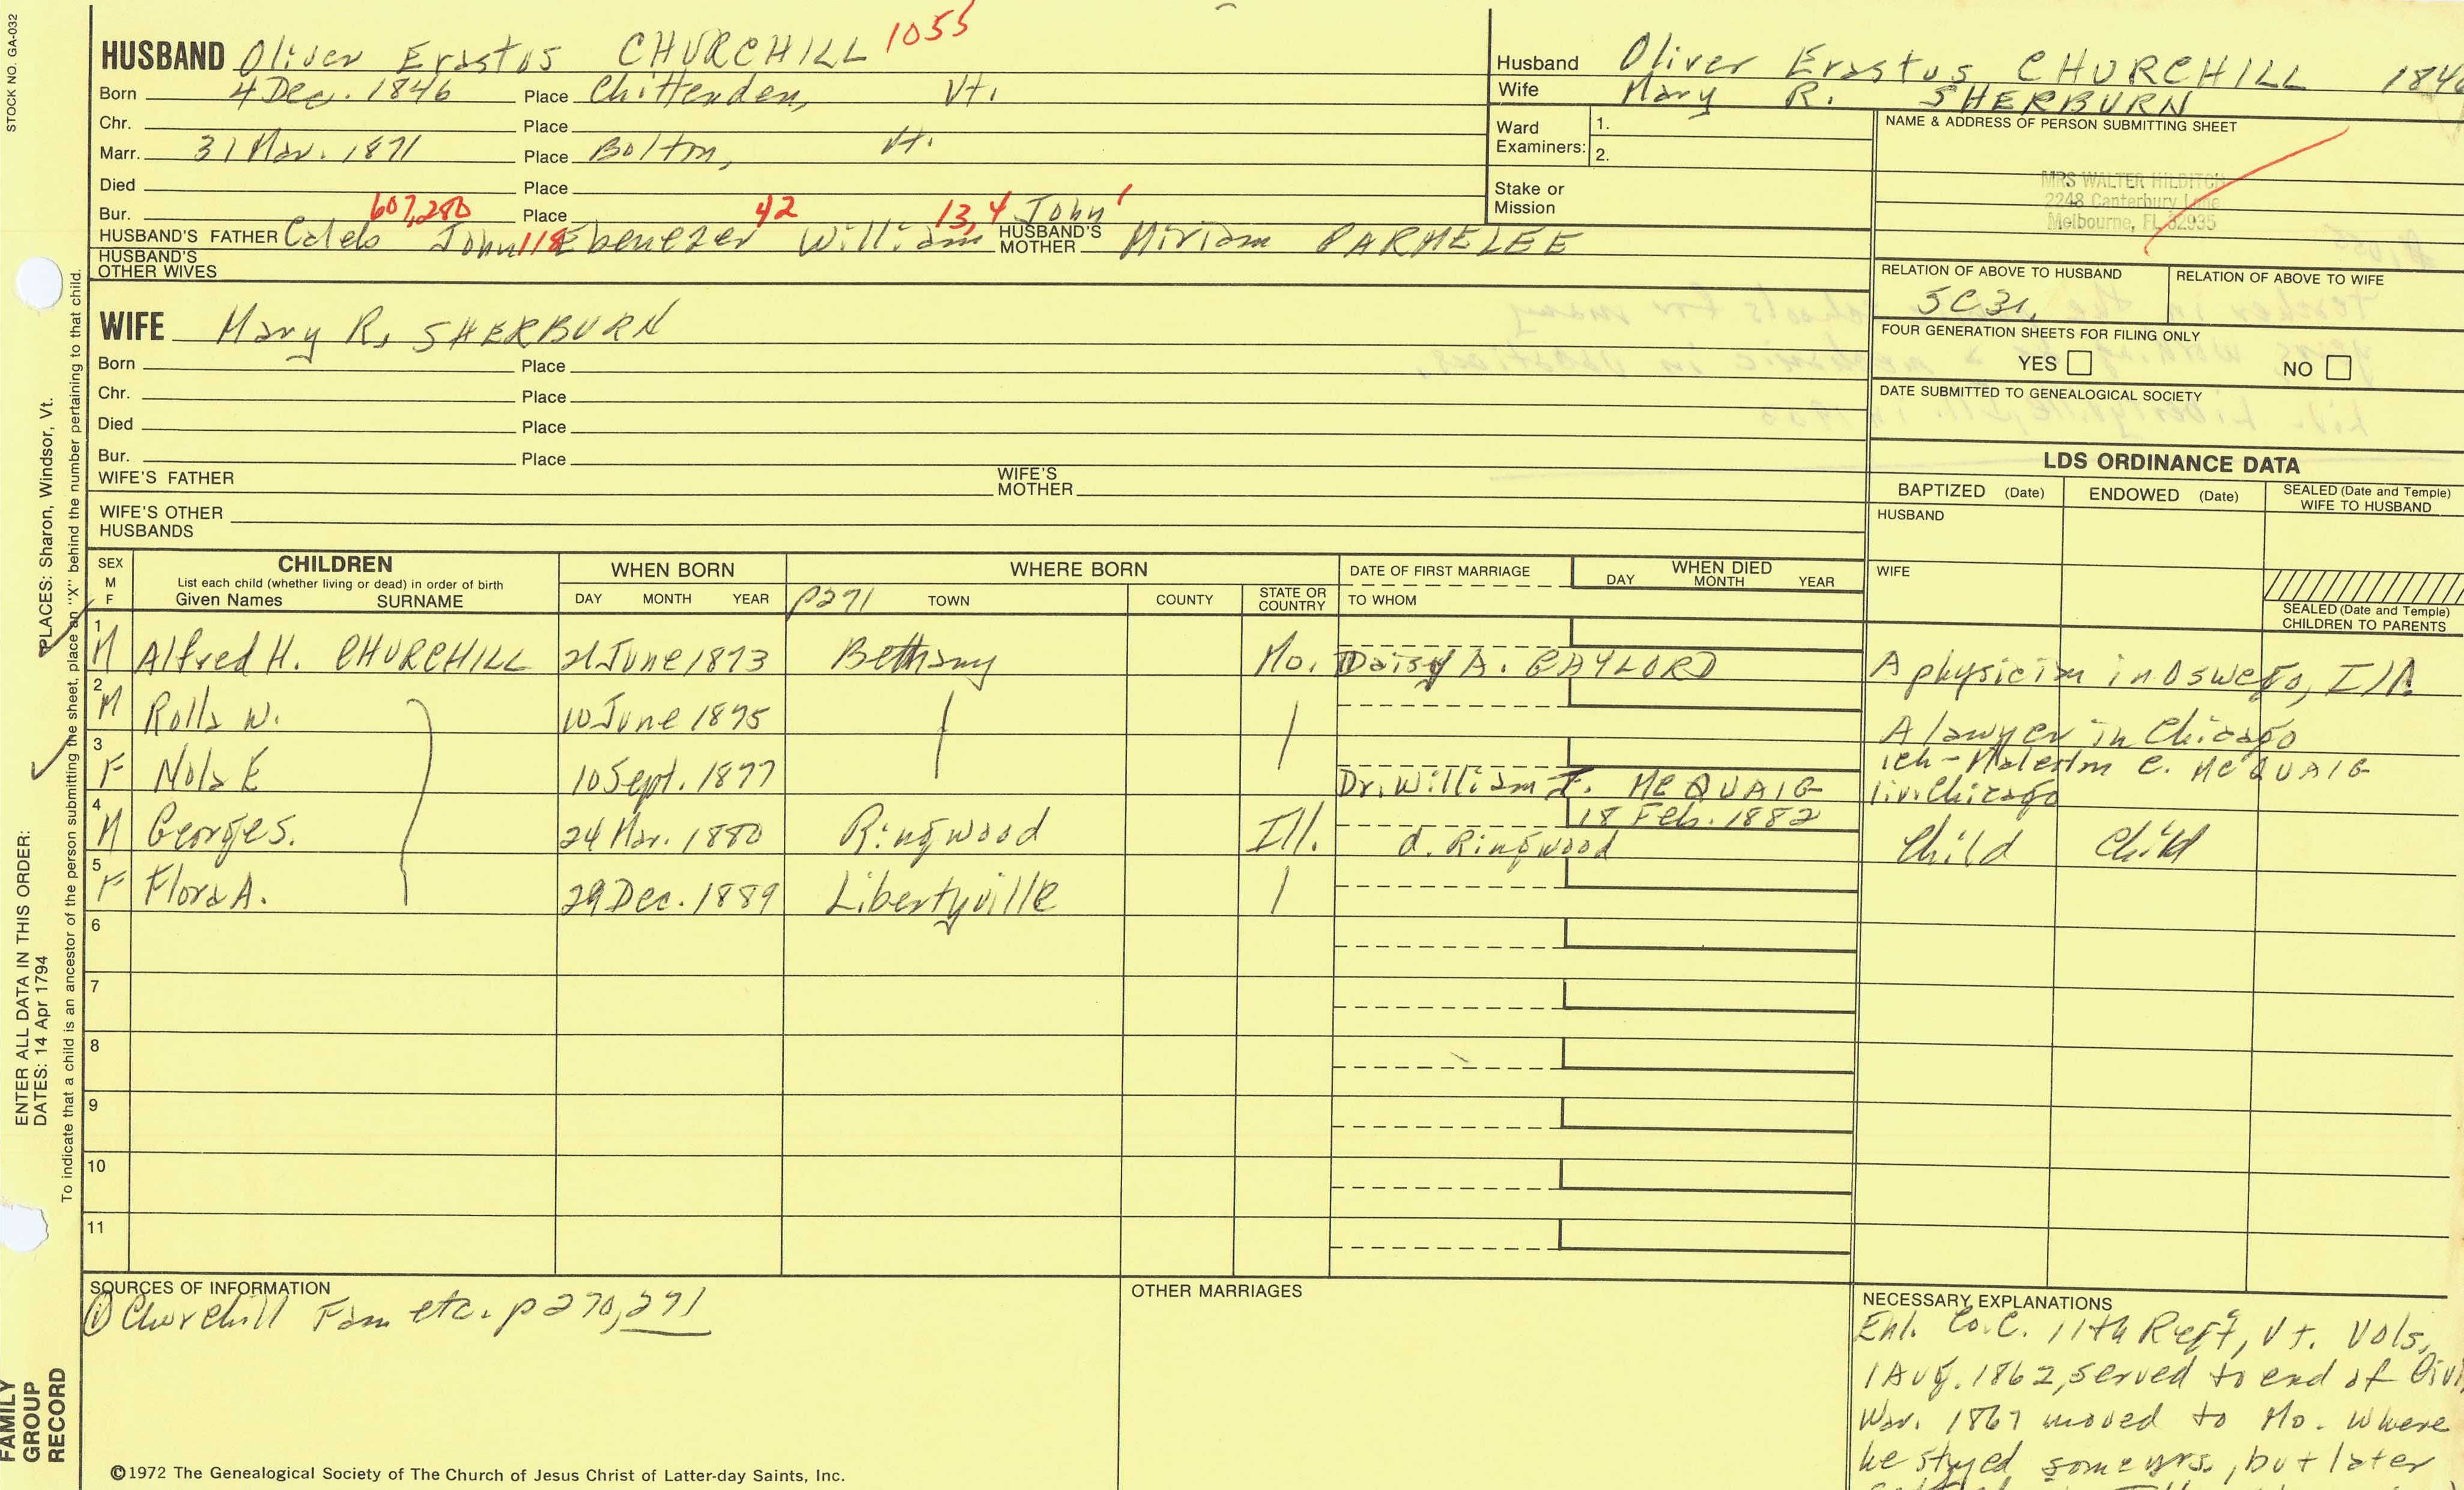 STOCK NO. GA-032
HUSBAND Oliver Erastus CHURCHILL 1055
Born 4 Dec. 1846 Place Chittenden, Vt.
Chr. Place
Marr. 31 Mar. 1871 Place Bolton, Vt.
Died Place
Bur. 607,280 Place 42 13, 4 John 1
HUSBAND'S FATHER Caleb John 118 Ebenezer William HUSBAND'S MOTHER Miriam PARMELEE
HUSBAND'S OTHER WIVES
Husband Oliver Erastus CHURCHILL 1846
Wife Mary R. SHERBURN
Ward Examiners: 1.
2.
Stake or Mission
NAME & ADDRESS OF PERSON SUBMITTING SHEET
MRS WALTER HILDITCH
2248 Canterbury Lane
Melbourne, FL 32935
RELATION OF ABOVE TO HUSBAND
5C3r.
RELATION OF ABOVE TO WIFE
FOUR GENERATION SHEETS FOR FILING ONLY
YES NO
DATE SUBMITTED TO GENEALOGICAL SOCIETY
WIFE Mary R. SHERBURN
Born Place
Chr. Place
Died Place
Bur. Place
WIFE'S FATHER WIFE'S MOTHER
WIFE'S OTHER HUSBANDS
LDS ORDINANCE DATA
BAPTIZED (Date) ENDOWED (Date) SEALED (Date and Temple) WIFE TO HUSBAND
HUSBAND
WIFE
SEALED (Date and Temple) CHILDREN TO PARENTS
SEX M F
CHILDREN
List each child (whether living or dead) in order of birth
Given Names SURNAME
WHEN BORN
DAY MONTH YEAR
WHERE BORN
p271 TOWN COUNTY STATE OR COUNTRY
DATE OF FIRST MARRIAGE
TO WHOM
WHEN DIED
DAY MONTH YEAR
1 M Alfred H. CHURCHILL 21 June 1873 Bethany Mo. Daisy A. GAYLORD A physician in Oswego, Ill.
2 M Rolla W. 10 June 1875 A lawyer in Chicago
3 F Nola E 10 Sept. 1877 Dr. William I. McQUAIG 1ch-Malcolm C. McQUAIG
liv. Chicago
4 M George S. 24 Mar. 1880 Ringwood Ill. 18 Feb. 1882
d. Ringwood Child Child
5 F Flora A. 29 Dec. 1889 Libertyville
6
7
8
9
10
11
SOURCES OF INFORMATION
① Churchill Fam etc. p 270, 271
OTHER MARRIAGES
NECESSARY EXPLANATIONS
Enl. Co. C. 11th Reg't, Vt. Vols,
1 Aug. 1862, served to end of Civil
War. 1867 moved to Mo. where
he stayed some yrs., but later
©1972 The Genealogical Society of The Church of Jesus Christ of Latter-day Saints, Inc.
FAMILY
GROUP
RECORD
ENTER ALL DATA IN THIS ORDER:
DATES: 14 Apr 1794
PLACES: Sharon, Windsor, Vt.
To indicate that a child is an ancestor of the person submitting the sheet, place an "X" behind the number pertaining to that child.